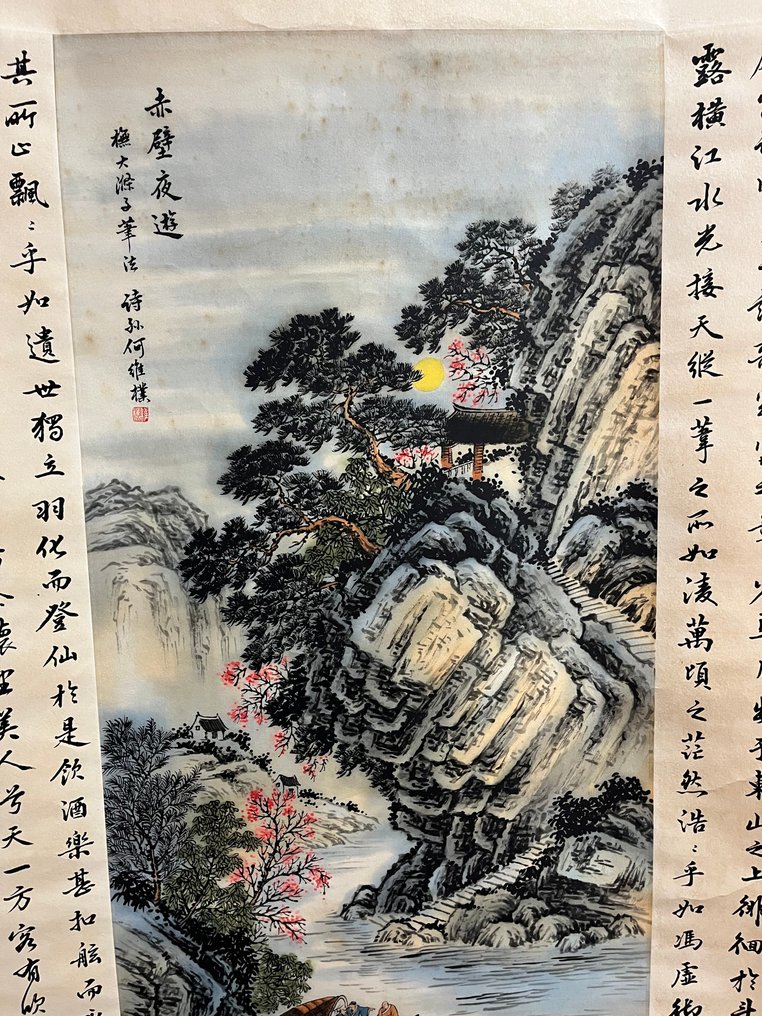 山之上徘徊於斗
露橫江水光接天縱一葦之所如凌萬頃之茫然浩〻乎如馮虛御
赤壁夜遊
撫大滌子筆法 詩孫何維樸
其所止飄〻乎如遺世獨立羽化而登仙於是飲酒樂甚扣舷而
懷望美人兮天一方客有吹